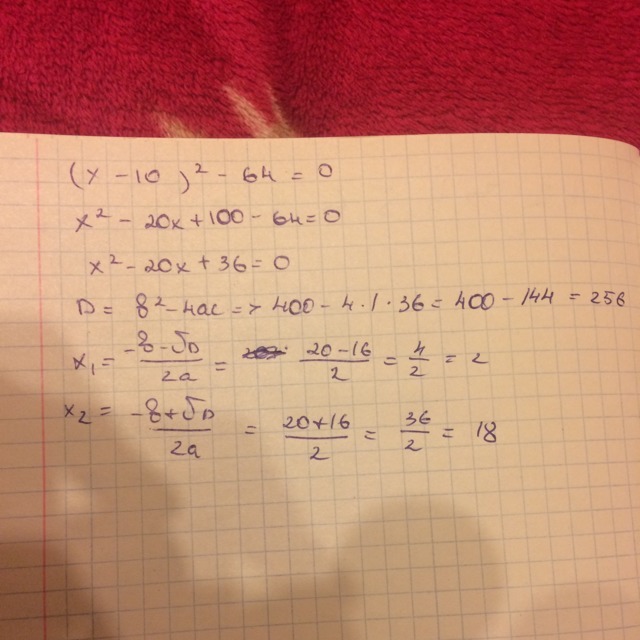 (x - 10)² - 64 = 0
x² - 20x + 100 - 64 = 0
x² - 20x + 36 = 0
D = b² - 4ac => 400 - 4·1·36 = 400 - 144 = 256
x₁ = (-b - √D)/2a = (20 - 16)/2 = 4/2 = 2
x₂ = (-b + √D)/2a = (20 + 16)/2 = 36/2 = 18